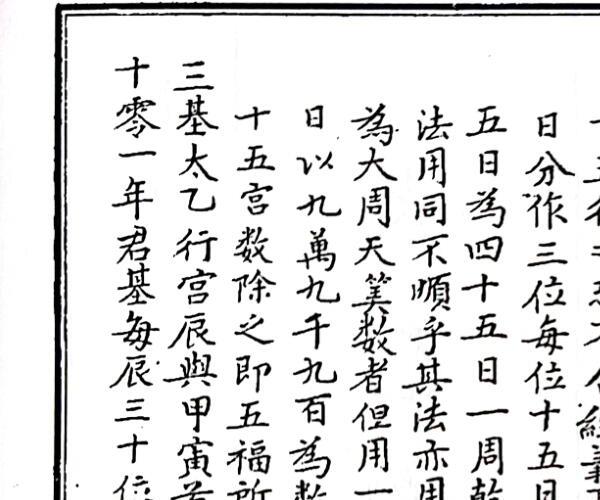 日分作三位每位十五日
五日為四十五日一周乾
法用同不順乎其法亦用
為大周天筭数者但用一
日以九萬九千九百為数
十五宫数除之即五福所
三基太乙行宫辰與甲寅
十零一年君基每辰三十位